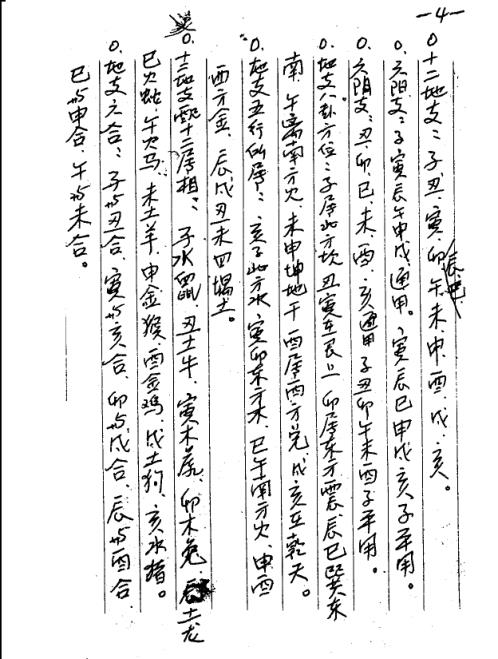 -4-
○十二地支:子、丑、寅、卯、辰、巳、午、未、申、酉、戌、亥。
○、六阳支:子寅辰午申戌通用。寅辰巳申戌亥子平用。
○、六阴支:丑、卯、巳、未、酉、亥通用子丑卯午未酉子平用。
○、地支八卦方位:子居北方坎丑寅在艮上卯居东方震辰巳巽东
南、午离南方火、未申坤地干酉居西方兑、戌亥在乾天。
○、地支五行所属:亥子北方水、寅卯东方木、巳午南方火、申酉
西方金、辰戌丑未四塌土。
○、十二地支配十二属相:子水鼠、丑土牛、寅木虎、卯木兔、辰土龙
巳火蛇、午火马、未土羊、申金猴、酉金鸡、戌土狗、亥水猪。
○、地支六合:子与丑合、寅与亥合、卯与戌合、辰与酉合
巳与申合、午与未合。